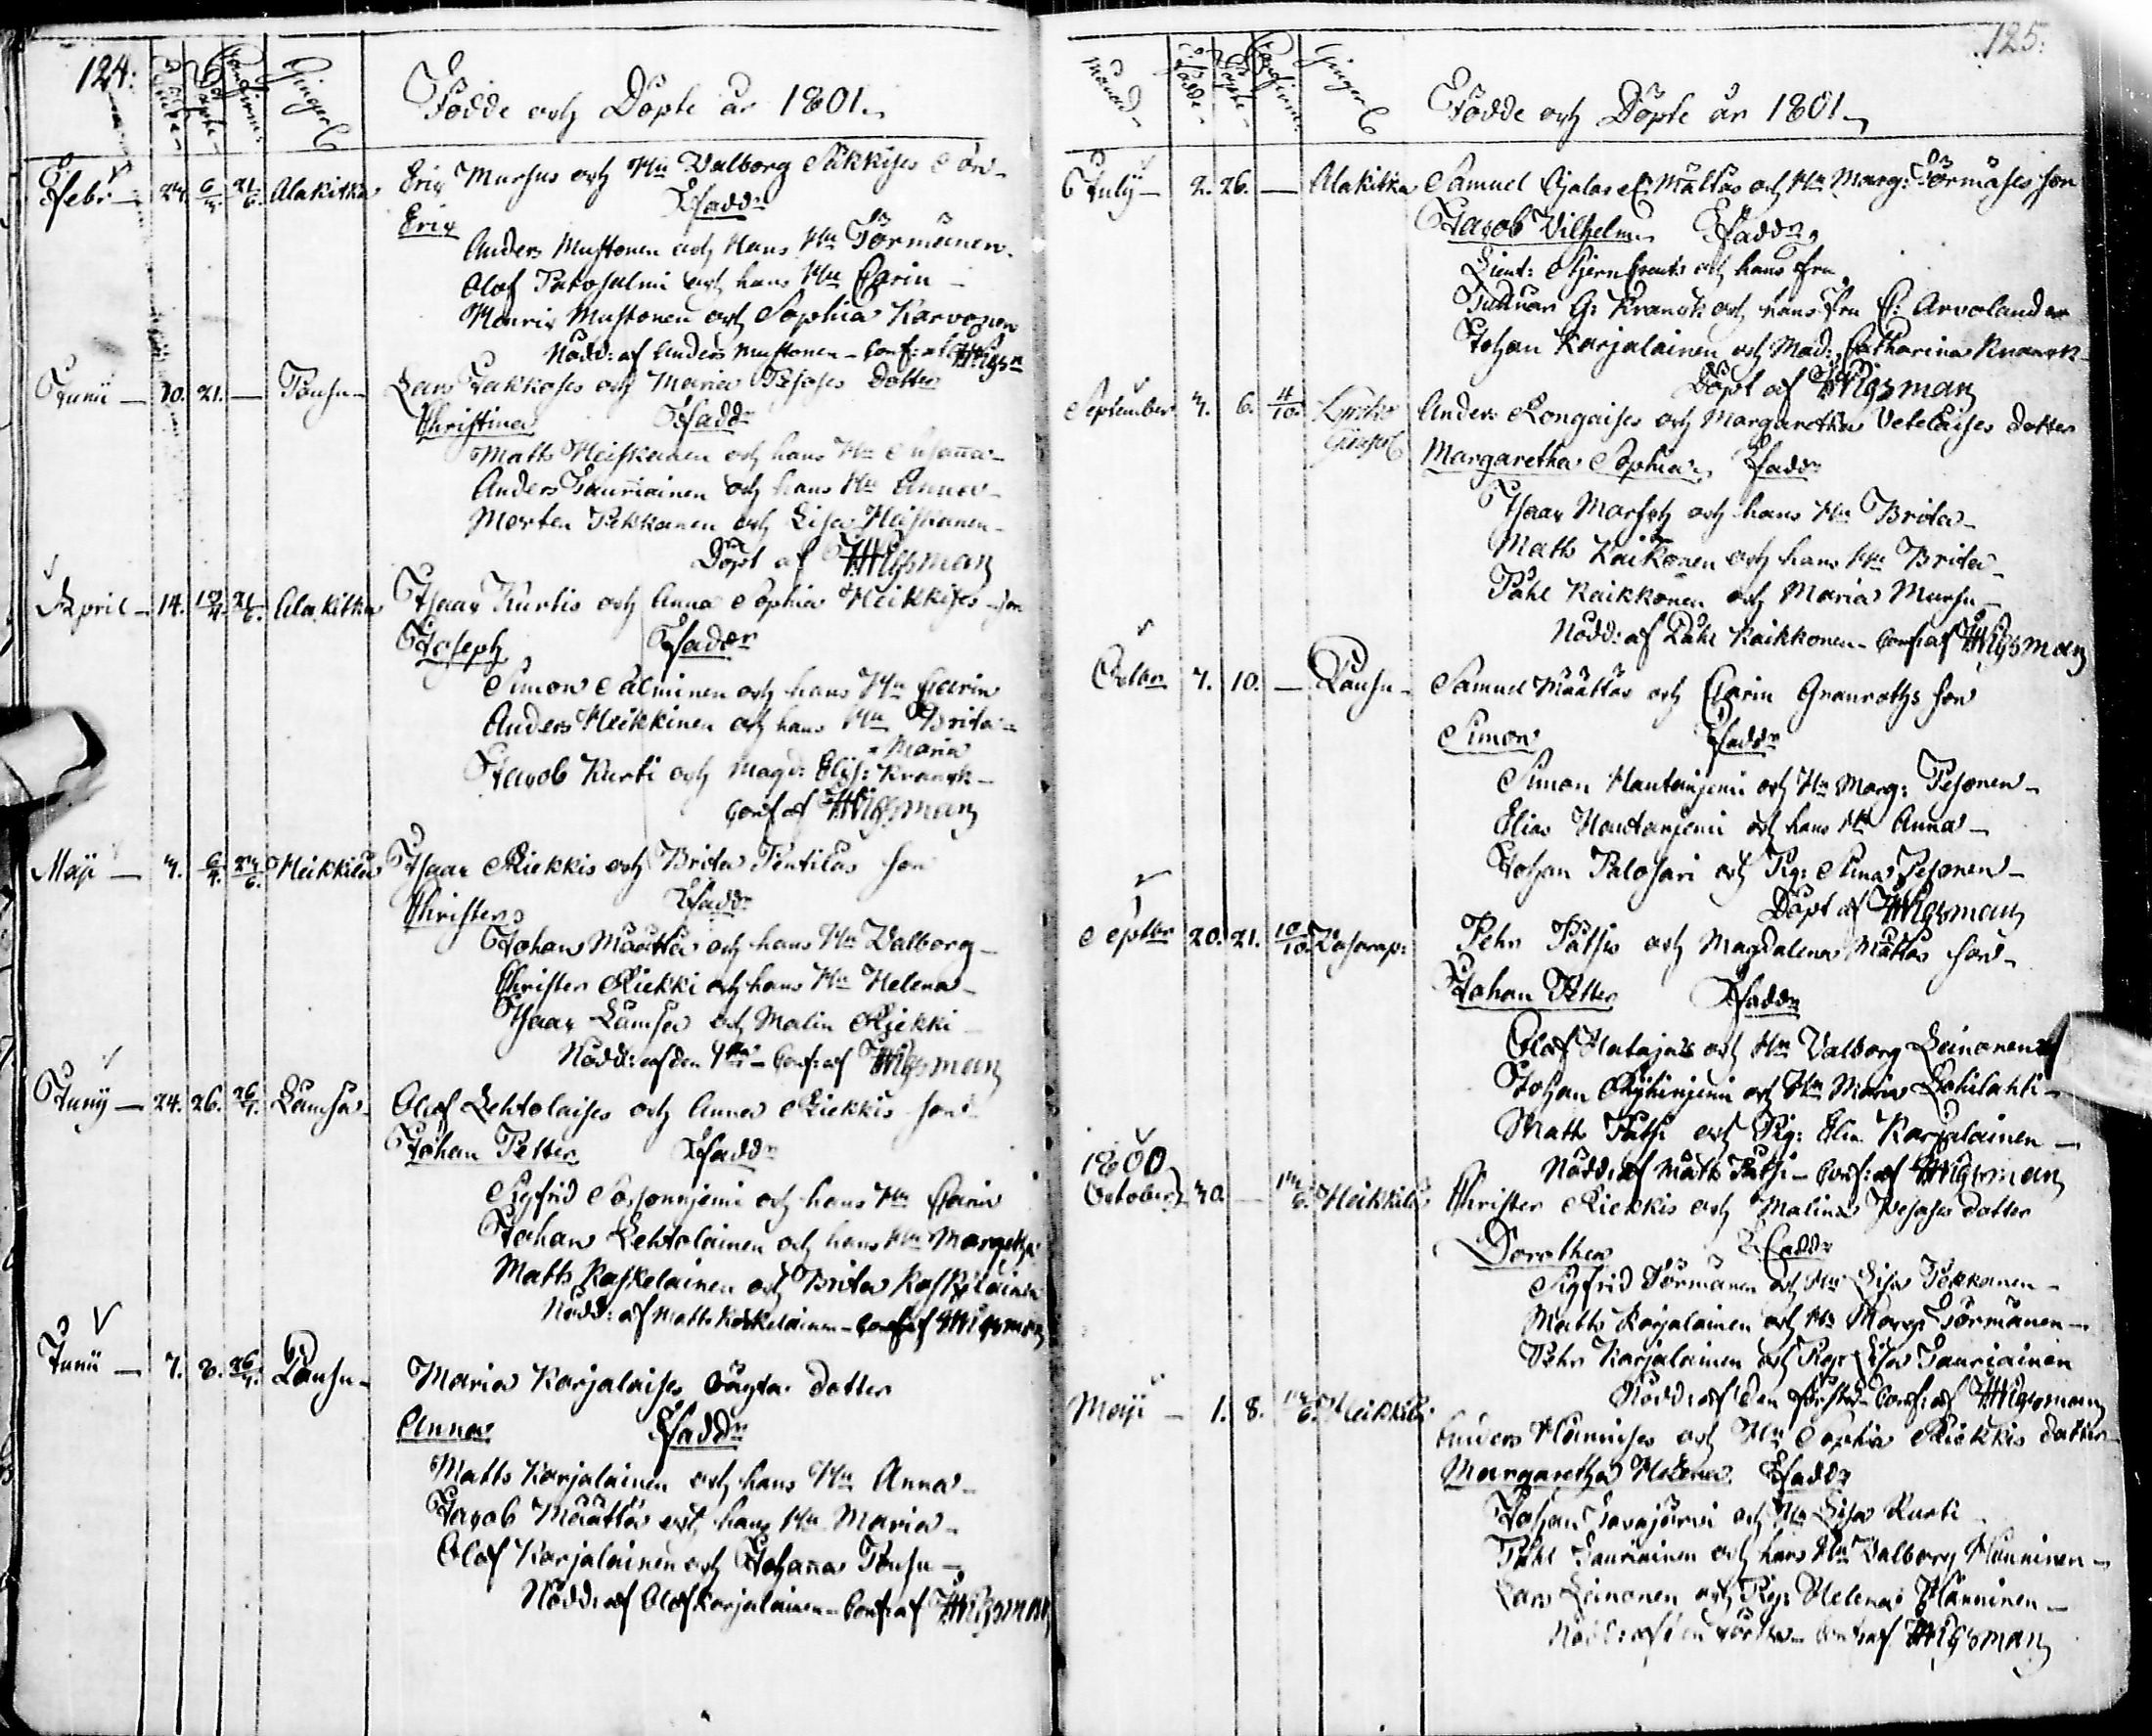 124:
Födde och Döpte år 1801.
Febr: 24. 6/4 21/6 Alakitka Eric Mursus och Hu Valborg Säkkises Son
Eric Fadd:r
Anders Mustonen och Hans Hu Törmänen
Olof Patosalmi och hans Hu Carin
Henric Mustonen och Sophia Karvonen
Nödd: af Anders Mustonen - Conf: af Wigsn
Junii 20. 21. — Pousu Lars Jakkoses och Maria Pesoses dotter
Christina Fadd:r
Matts Heiskanen och hans Hu Susanna
Anders Tauriainen och hans Hu Anna
Morten Pekkanen och Lisa Heiskanen
Döpt af Wigsman
April 14. 19/4 21/6 Alakitka Isaac Kurtis och Anna Sophia Heikkises son
Joseph Fadder
Simon Salminen och hans Hu Carin
Anders Heikkinen och hans Hu Brita
Maria
Jacob Kurti och Magd: Elis: Kranck
Conf af Wigsman
Maji 4. Heikkilä Isaac Riekkis och Brita Pentiläs son
Christer Fadd:r
Johan Määttä och hans Hu Valborg
Christer Riekki och hans Hu Helena
Isaac Lämsä och Malin Riekki
Nödd: af den Conf: af Wigsman
Junij 24. 26. 26/7. Lämsä Olof Lehtolaises och Anna Riekkis son
Johan Petter Fadd:r
Sigfrid och hans Hu Carin
Johan Lehtolainen och hans Hu Margetha
Matts Koskelainen och Brita Koskelainen
Nödd: af Matts Koskelainen - Conf: af Wigsman
Junii 7. 8. 26/7. Pousu Maria Karjalaises oägta dotter
Anna Fadd:r
Matts Karjalainen och hans Hu Anna
Jacob Määttä och hans Hu Maria
Olof Karjalainen och Johanna Pousu
Nödd: af Olof Karjalainen - Conf: af Wigsman
125:
Månad Födde Döpte Confirm:
Födde och Döpte år 1801.
July 2. 26. — Alakitka Samuel Määttäs och Hu Marg: Törmäses son
Jacob Vilhelm Fadd:r
Lieut: och hans fru
G: Kranck och hans fru C: Arvolander
Johan Karjalainen och Mad: Catharina Kranck
Döpt af Wigsman
September 4. 6. 4/10. Anders Rongaises och Margaretha Veteläises dotter
Margaretha Sophia Fadd:r
Isaac och hans Hu Brita
Matts Kaikkonen och hans Hu Brita
Påhl Kaikkonen och Maria Mursu
Nödd: af Påhl Kaikkonen - Conf: af Wigsman
Octbr 7. 10. — Pousu Samuel Määttäs och Carin Granroths son
Simon Fadd:r
Simon Hautaniemi och Hu Marg: Pesonen
Elias Hautaniemi och hans Hu Anna
Johan Palosari och Pig: Stina Pesonen
Döpt af Wigsman
Septbr 20. 21. 10/10. Pehr Pätsis och Magdalena Määttäs son
Johan Petter Fadd:r
Olof Hatajas och Hu Valborg Leinonen
Johan Ryhinjemi och Hu Maria Lohilahti
Matts Pätsi och Pig: Elin Karjalainen
Nödd: af Matts Pätsi - Conf: af Wigsman
1800
October 30. — Heikkilä Christer Riekkis och Malina Pesoses dotter
Dorothea Fadd:r
Sigfrid Törmänen och Hu Lisa Pekkanen
Matts Karjalainen och Hu Marg: Törmänen
Pehr Karjalainen och Pig: Lisa Tauriainen
Nödd: af den förste Conf: af Wigsman
Maji 1. 8. Heikkilä Anders Hännises och Hu Sophia Riekkis dotter
Margaretha Helena Fadd:r
Johan Savajärvi och Hu Lisa Kurti
Påhl Tauriainen och hans Hu Valborg Hänninen
Lars Leinonen och Pig: Helena Hänninen
Nödd: af den förste - Conf: af Wigsman